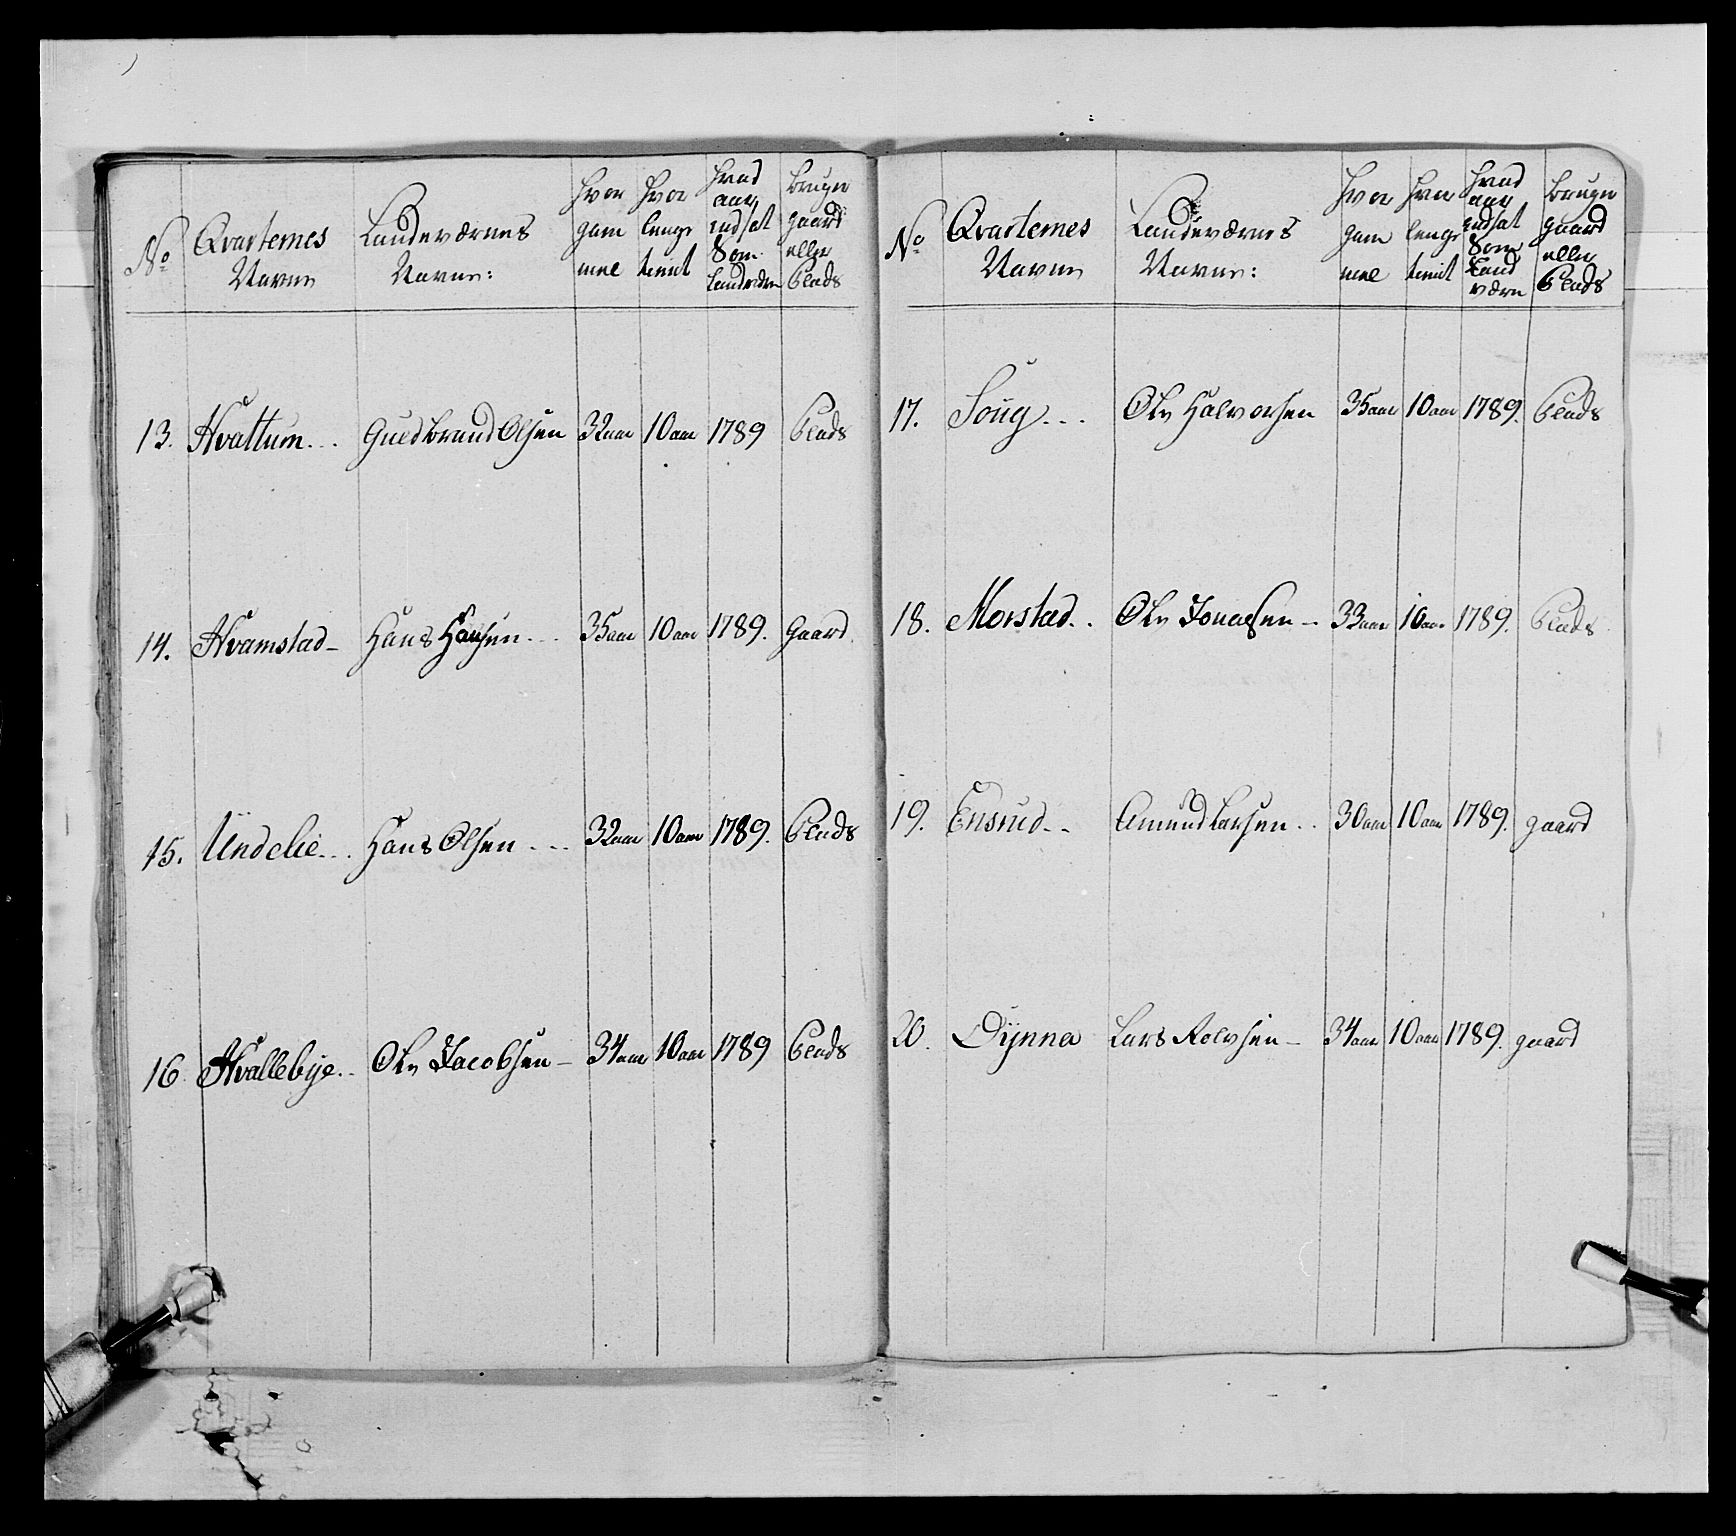 No Qvarternes Navne Landeværnes Navne: Hvor gammel Hvor lenge tient Hvad aar indsat Som Landværn Bruger gaard eller Plads
13. Hvattum... Guldbrand Olsen 32 aar 10 aar 1789 Plads
14. Hvamstad- Hans Hansen... 35 aar 10 aar 1789. Gaard
15. Undelie... Hans Olsen... 32 aar 10 aar 1789. Plads
16. Hvallebye.. Ole Jacobsen- 34 aar 10 aar 1789 Plads
No Qvarternes Navne Landeværnes Navne: Hvor gammel Hvor lenge tient Hvad aar indsat Som Land værn Bruger gaard eller Plads
17. Soug... Ole Halvorsen 35 aar 10 aar 1789. Plads
18. Morstad.. Ole Jonassen- 33 aar 10 aar 1789. Plads
19. Ensrud.. Amund Larsen.. 30 aar 10 aar 1789. gaard
20. Dynna Lars Rolvsen- 34 aar 10 aar 1789. gaard